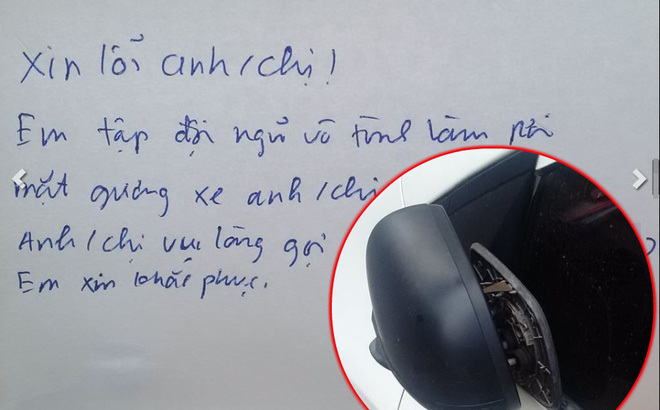 Xin lổi anh/chị!
Em tập đội ngủ vô tình làm rơi
mặt gương xe anh/chị
Anh/chị vui lòng gọi
Em xin khắc phục.